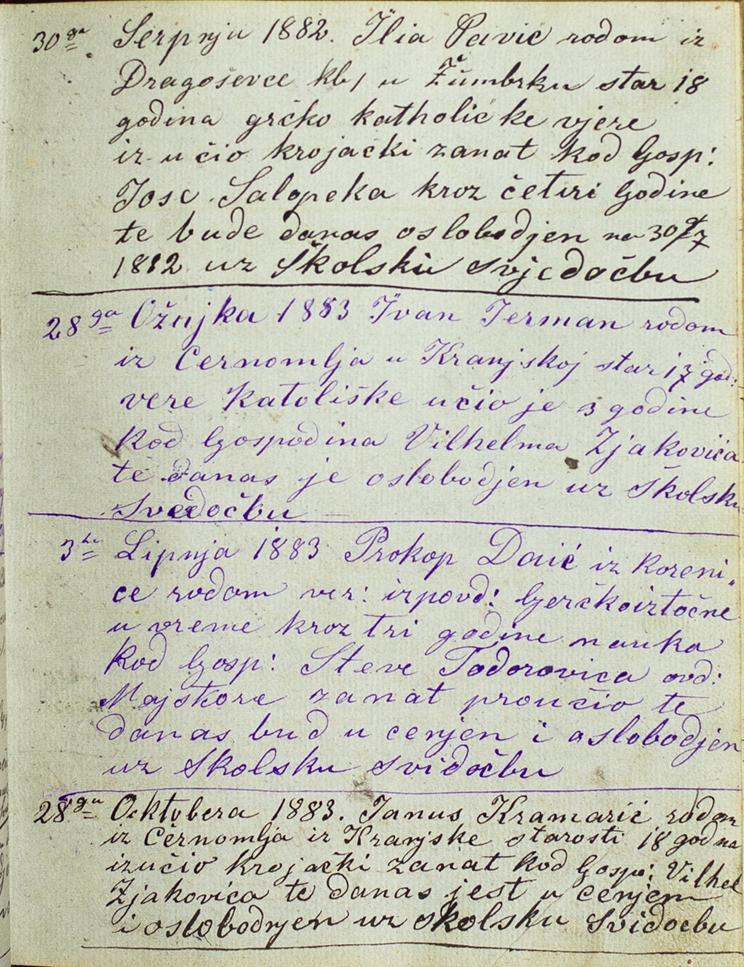 30ga Serpnja 1882. Ilia Pavić rodom iz
Dragoševce kb1 u Žumbrku star 18
godina grčko katholičke vjere
iz učio krojački zanat kod Gosp:
Jose Salopeka kroz četiri Godine
te bude danas oslobodjen na 30
1882 uz školsku Svjedočbu
28ga Ožujka 1883 Ivan Jerman rodom
iz Černomlja u Kranjskoj star 17 god:
vere katoliške učio je 3 godine
kod Gospodina Vilhelma Zjakovića
te danas je oslobodjen uz školsku
Svedočbu
3 Lipnja 1883 Prokop Davić iz Koreni-
ce rodom ver: izpovd: Gerčkoiztočne
u vreme kroz tri godine nauka
kod Gosp: Steve Todorovića ovd:
Majstora zanat proučio te
danas bud u cenjen i oslobodjen
uz školsku Svidočbu
28ga Oktobera 1883. Janus Kramarić rodom
iz Černomlja iz Kranjske starosti 18 godna
izučio krojački zanat kod Gosp: Vilhel
Zjakovića te danas jest u cenjem
i oslobodnjen uz školsku Svidocbu